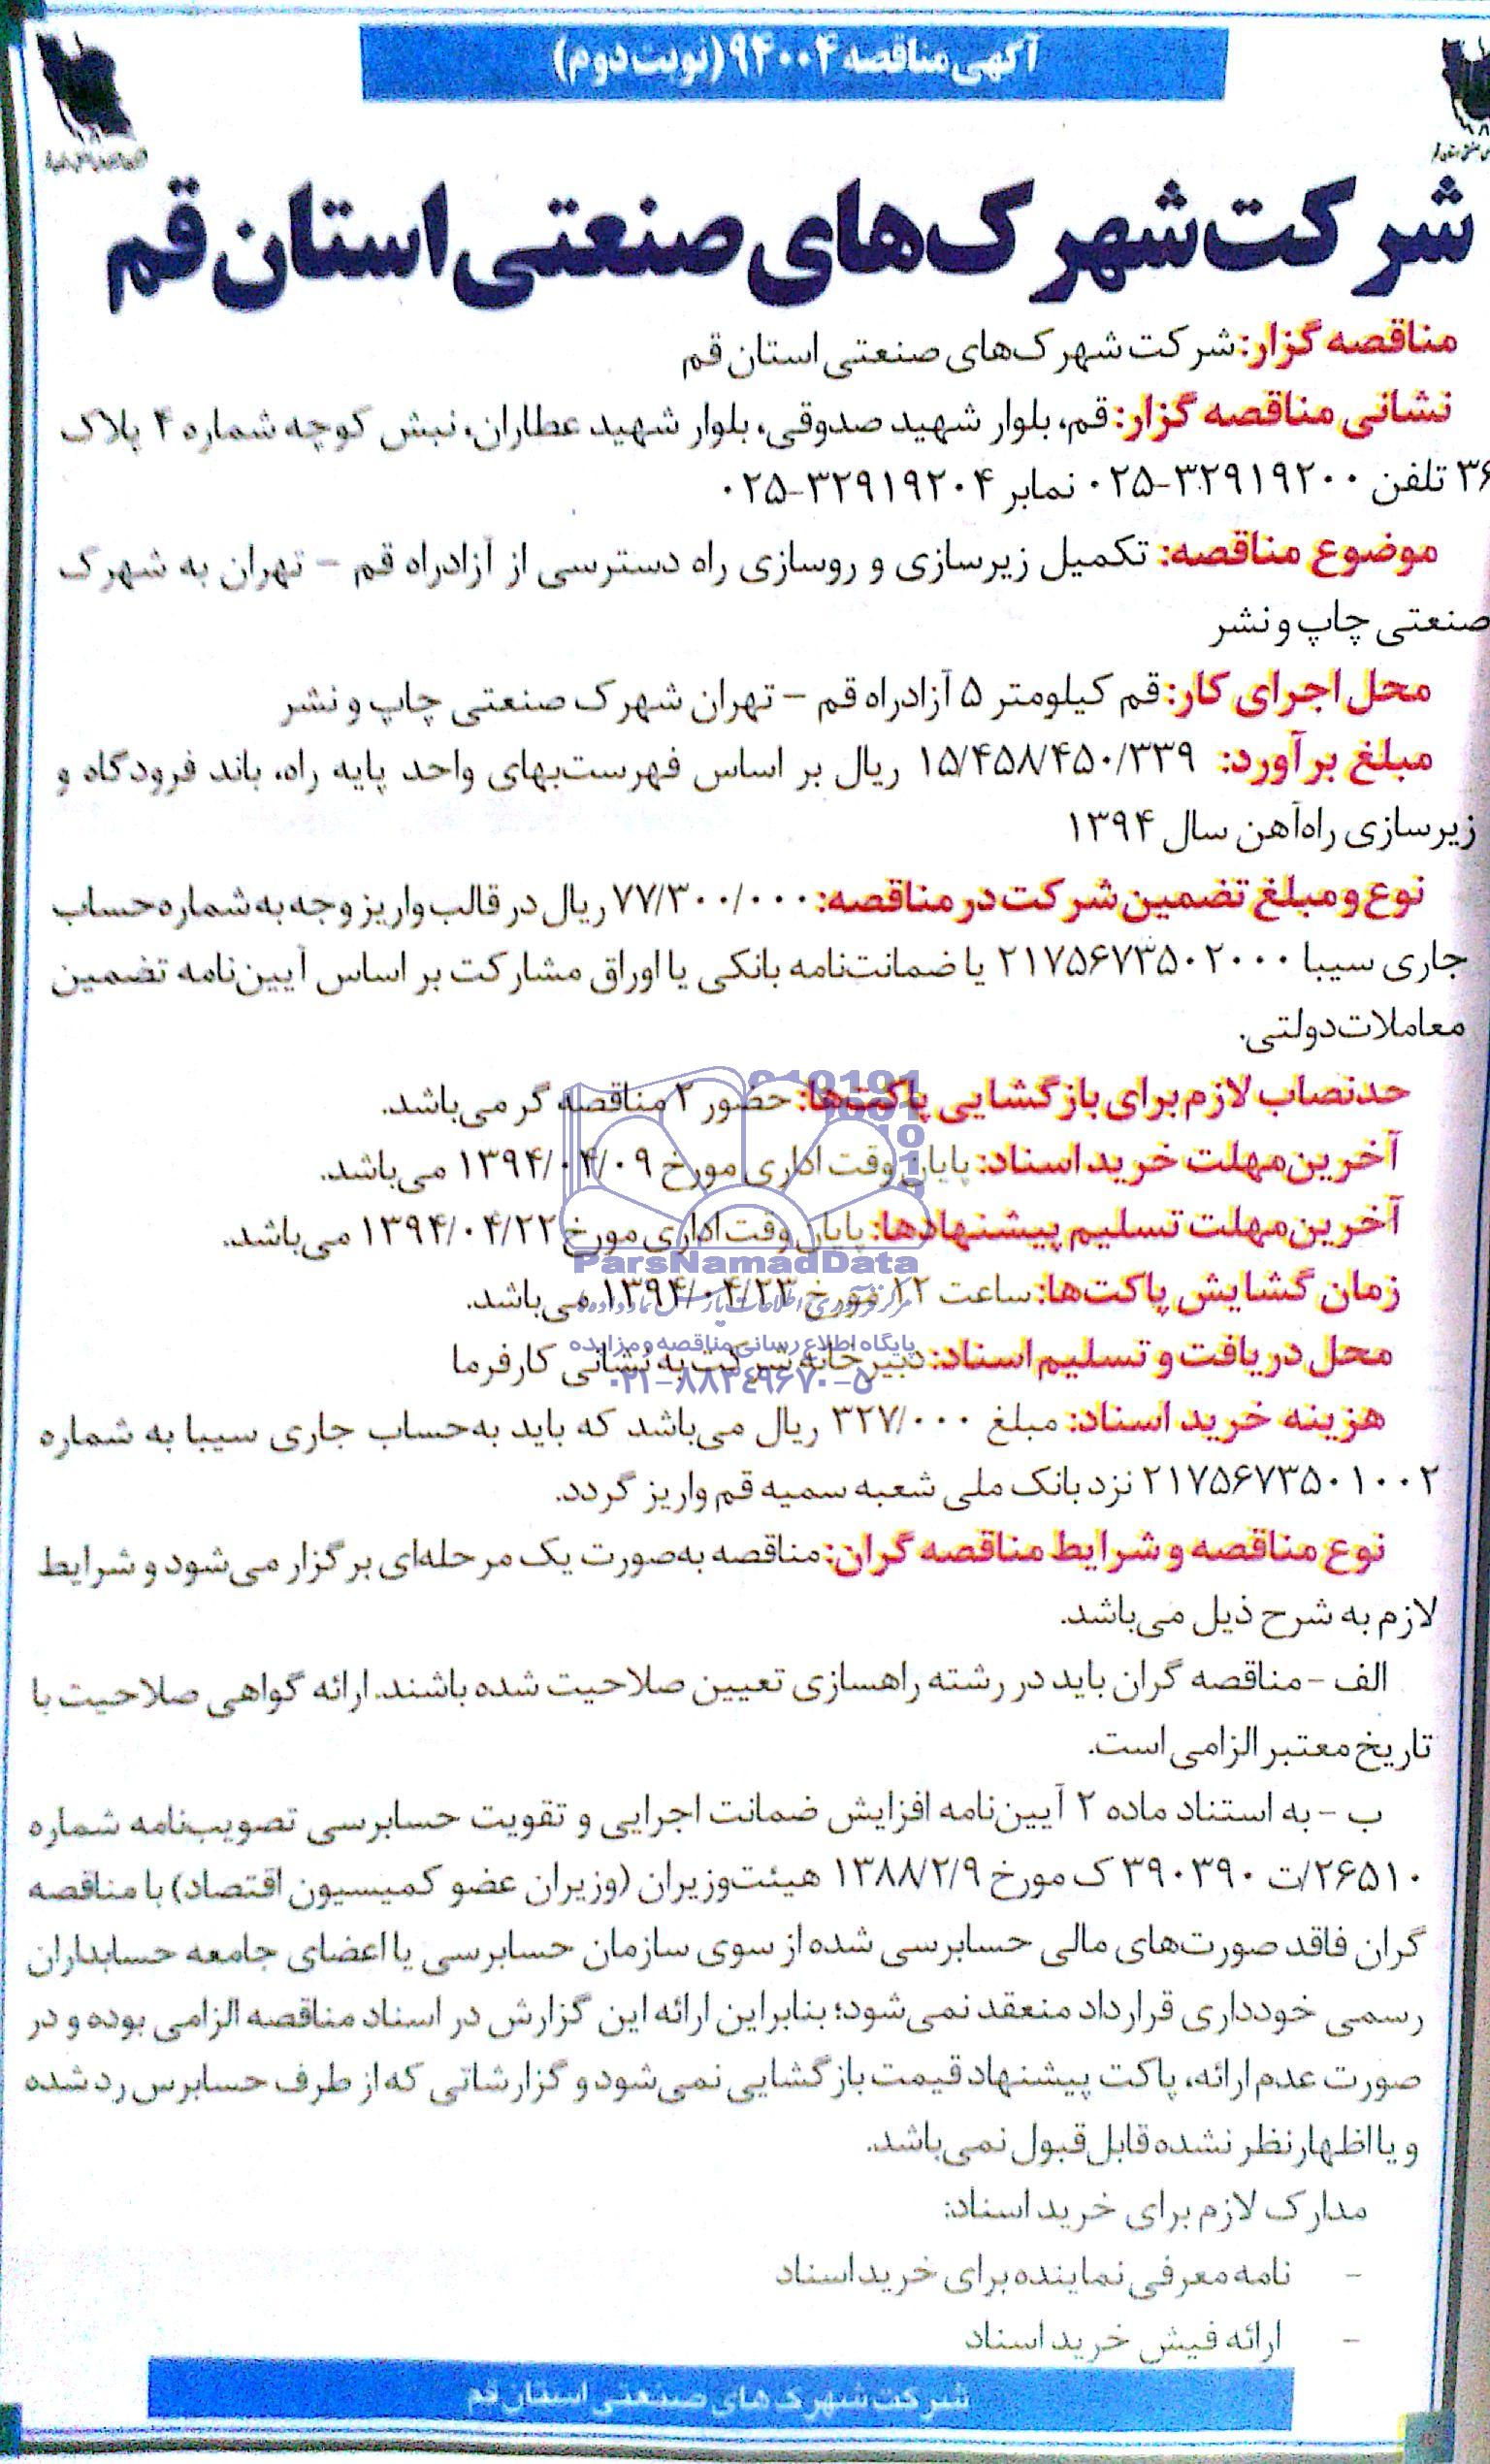 آگهی مناقصه ۹۴۰۰۴ (نوبت دوم)
شرکت شهرک‌های صنعتی استان قم
مناقصه گزار: شرکت شهرک‌های صنعتی استان قم
نشانی مناقصه گزار: قم، بلوار شهید صدوقی، بلوار شهید عطاران، نبش کوچه شماره ۴ پلاک
۳۶ تلفن ۳۲۹۱۹۲۰۰-۰۲۵ نمابر ۳۲۹۱۹۲۰۴-۰۲۵
موضوع مناقصه: تکمیل زیرسازی و روسازی راه دسترسی از آزادراه قم - تهران به شهرک
صنعتی چاپ و نشر
محل اجرای کار: قم کیلومتر ۵ آزادراه قم - تهران شهرک صنعتی چاپ و نشر
مبلغ برآورد: ۱۵/۴۵۸/۴۵۰/۳۳۹ ریال بر اساس فهرست‌بهای واحد پایه راه، باند فرودگاه و
زیرسازی راه‌آهن سال ۱۳۹۴
نوع و مبلغ تضمین شرکت در مناقصه: ۷۷/۳۰۰/۰۰۰ ریال در قالب واریز وجه به شماره حساب
جاری سیبا ۲۱۷۵۶۷۳۵۰۲۰۰۰ یا ضمانت‌نامه بانکی یا اوراق مشارکت بر اساس آیین‌نامه تضمین
معاملات دولتی.
حدنصاب لازم برای بازگشایی پاکت‌ها: حضور ۲ مناقصه گر می‌باشد.
آخرین مهلت خرید اسناد: پایان وقت اداری مورخ ۱۳۹۴/۰۴/۰۹ می‌باشد.
آخرین مهلت تسلیم پیشنهادها: پایان وقت اداری مورخ ۱۳۹۴/۰۴/۲۲ می‌باشد.
ParsNamadData
زمان گشایش پاکت‌ها: ساعت ۱۲ مورخ ۱۳۹۴/۰۴/۲۳ می‌باشد.
پایگاه اطلاع رسانی مناقصه و مزایده
محل دریافت و تسلیم اسناد: دبیرخانه شرکت به نشانی کارفرما
۰۲۱-۸۸۳۴۹۶۷۰-۵
هزینه خرید اسناد: مبلغ ۳۲۷/۰۰۰ ریال می‌باشد که باید به‌حساب جاری سیبا به شماره
۲۱۷۵۶۷۳۵۰۱۰۰۲ نزد بانک ملی شعبه سمیه قم واریز گردد.
نوع مناقصه و شرایط مناقصه گران: مناقصه به‌صورت یک مرحله‌ای برگزار می‌شود و شرایط
لازم به شرح ذیل می‌باشد.
الف - مناقصه گران باید در رشته راهسازی تعیین صلاحیت شده باشند. ارائه گواهی صلاحیت با
تاریخ معتبر الزامی است.
ب - به استناد ماده ۲ آیین‌نامه افزایش ضمانت اجرایی و تقویت حسابرسی تصویب‌نامه شماره
۲۶۵۱۰/ت ۳۹۰۳۹۰ ک مورخ ۱۳۸۸/۲/۹ هیئت‌وزیران (وزیران عضو کمیسیون اقتصاد) با مناقصه
گران فاقد صورت‌های مالی حسابرسی شده از سوی سازمان حسابرسی یا اعضای جامعه حسابداران
رسمی خودداری قرارداد منعقد نمی‌شود؛ بنابراین ارائه این گزارش در اسناد مناقصه الزامی بوده و در
صورت عدم ارائه، پاکت پیشنهاد قیمت بازگشایی نمی‌شود و گزارشاتی که از طرف حسابرس رد شده
و یا اظهار نظر نشده قابل قبول نمی‌باشد.
مدارک لازم برای خرید اسناد:
- نامه معرفی نماینده برای خرید اسناد
- ارائه فیش خرید اسناد
شرکت شهرک های صنعتی استان قم